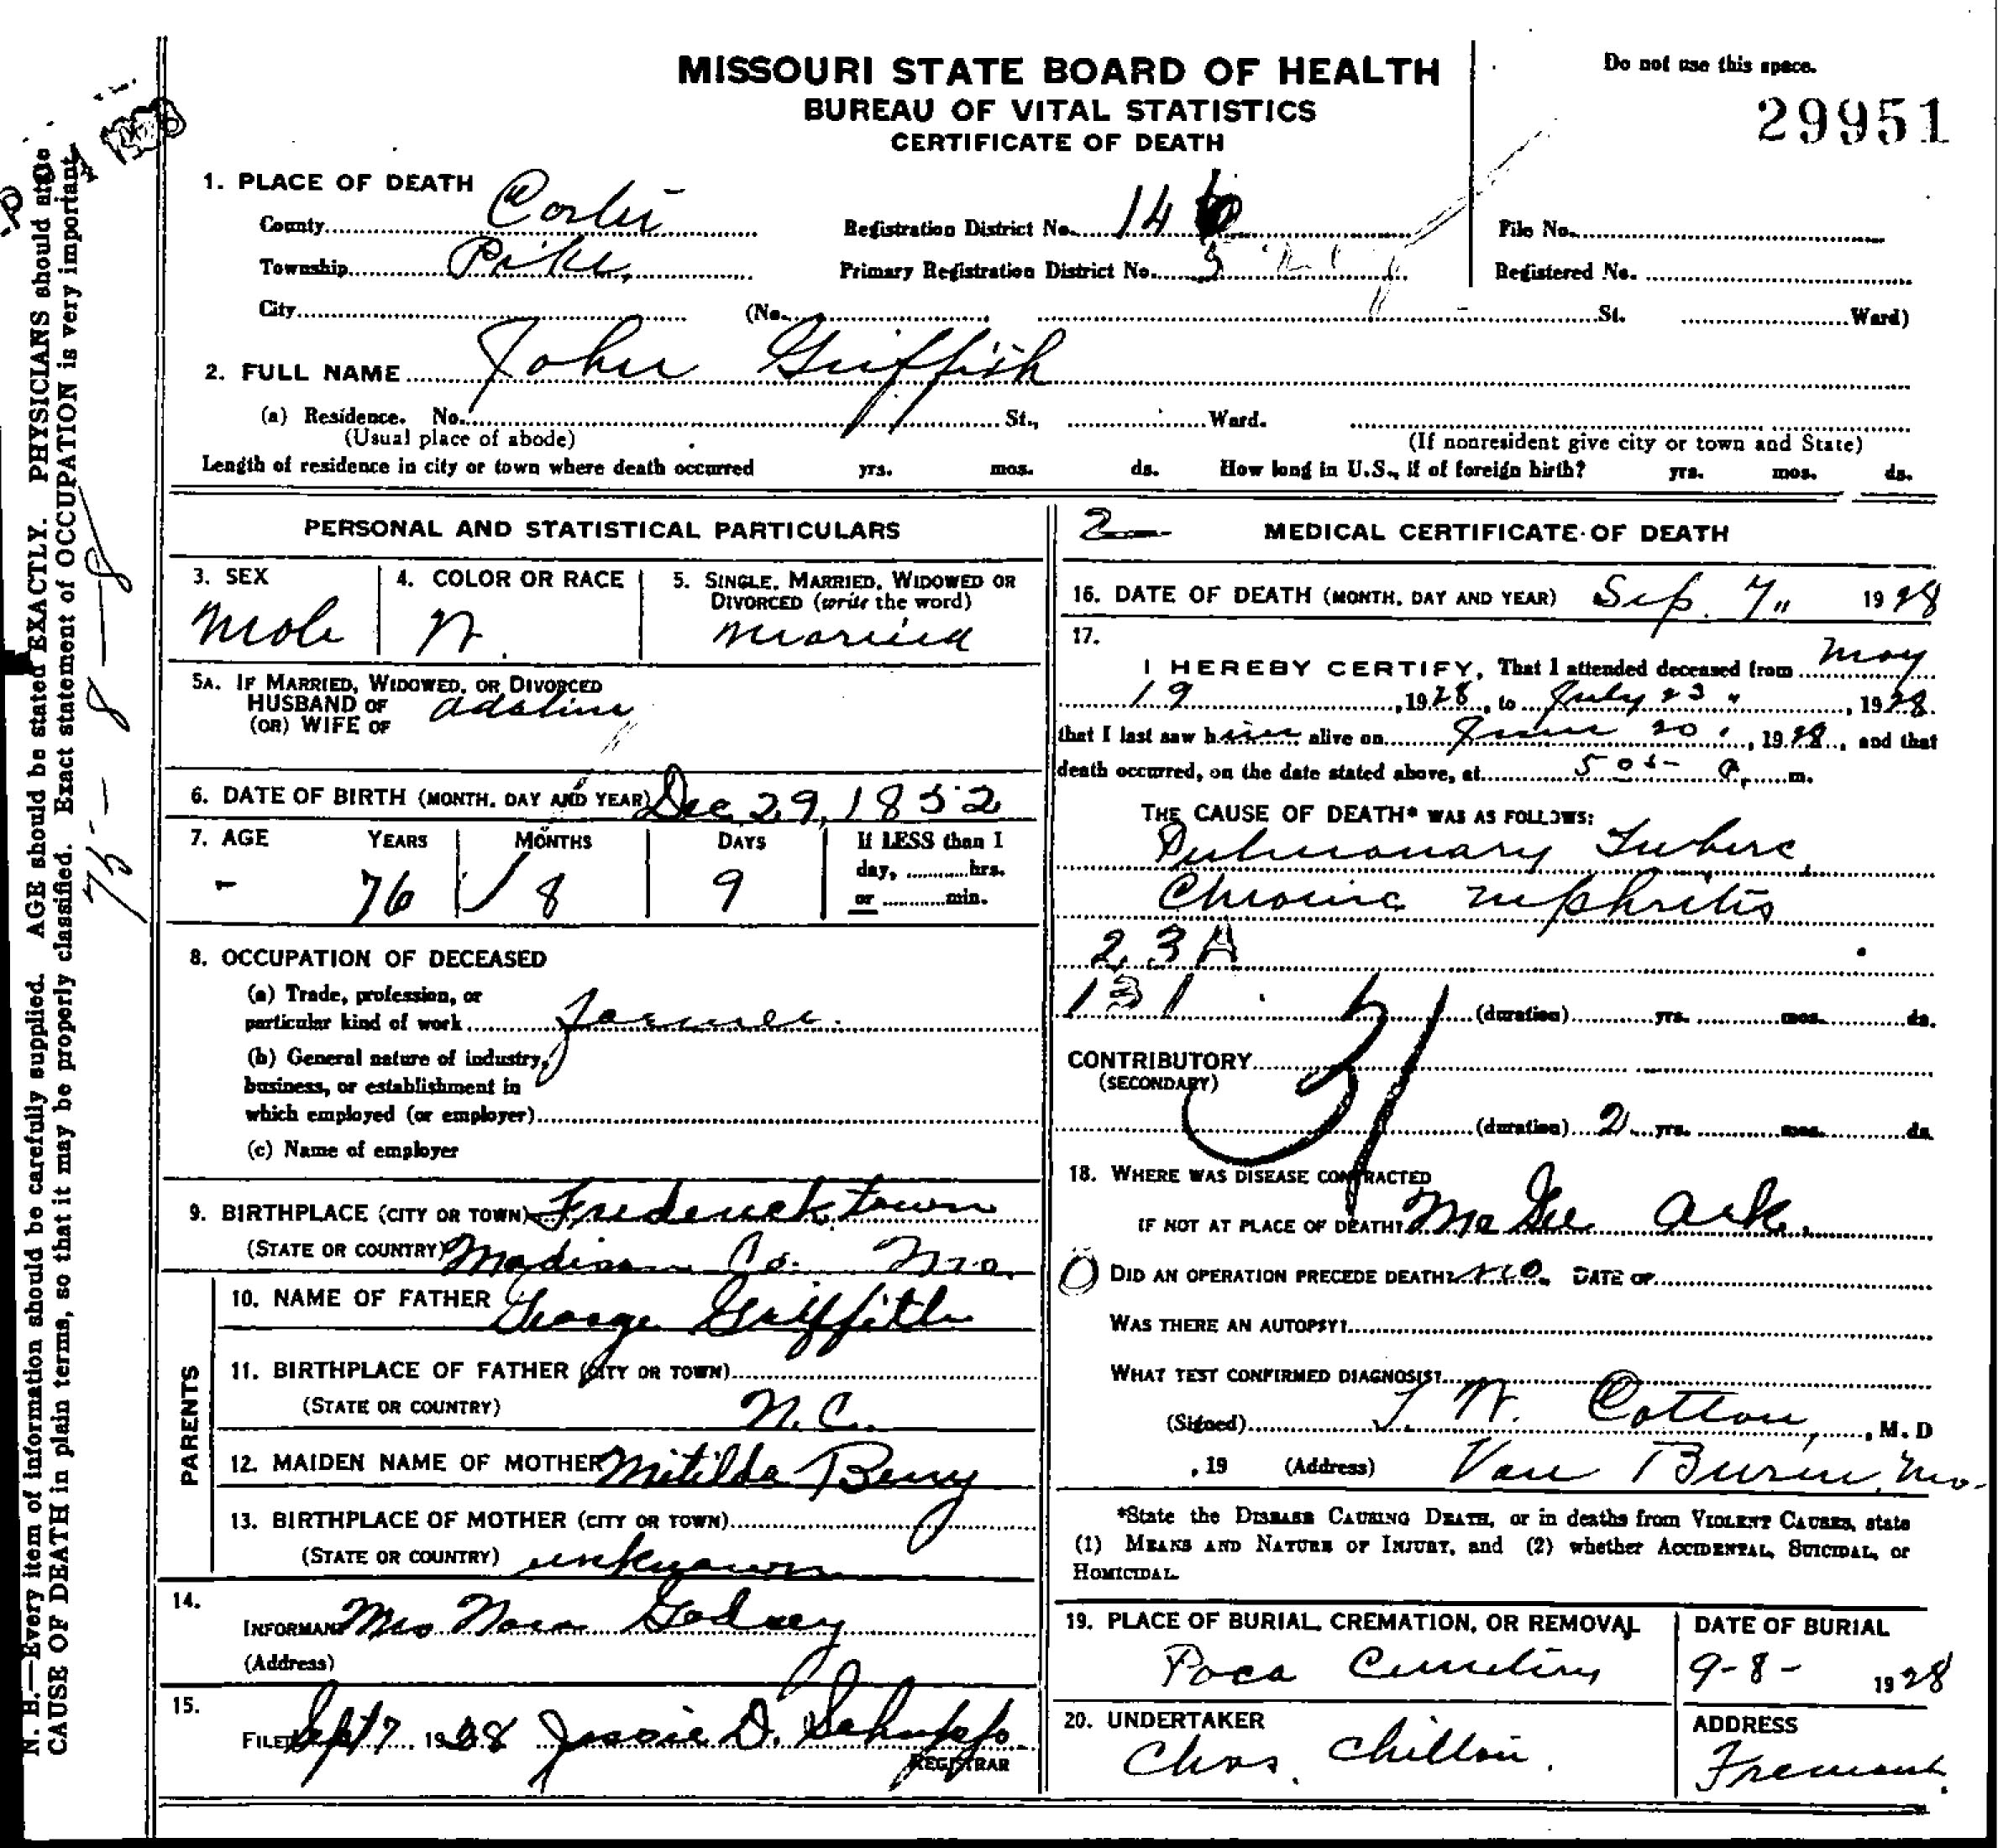 MISSOURI STATE BOARD OF HEALTH
BUREAU OF VITAL STATISTICS
CERTIFICATE OF DEATH
Do not use this space.
29951
1. PLACE OF DEATH
County Carter Registration District No. 14 File No.
Township Pike, Primary Registration District No. 5 Registered No.
City (No. St. Ward)
2. FULL NAME John Griffith
(a) Residence. No. St., Ward.
(Usual place of abode) (If nonresident give city or town and State)
Length of residence in city or town where death occurred yrs. mos. ds. How long in U.S., if of foreign birth? yrs. mos. ds.
PERSONAL AND STATISTICAL PARTICULARS
3. SEX 4. COLOR OR RACE 5. SINGLE, MARRIED, WIDOWED OR DIVORCED (write the word)
Male W. Married
5A. IF MARRIED, WIDOWED, OR DIVORCED
HUSBAND OF Adaline
(OR) WIFE OF
6. DATE OF BIRTH (MONTH, DAY AND YEAR) Dec 29, 1852
7. AGE YEARS MONTHS DAYS If LESS than 1
day, hrs.
or min.
- 76 8 9
8. OCCUPATION OF DECEASED
(a) Trade, profession, or
particular kind of work Farmer.
(b) General nature of industry,
business, or establishment in
which employed (or employer)
(c) Name of employer
9. BIRTHPLACE (CITY OR TOWN) Fredericktown
(STATE OR COUNTRY) Madison Co. Mo.
PARENTS
10. NAME OF FATHER George Griffith
11. BIRTHPLACE OF FATHER (CITY OR TOWN)
(STATE OR COUNTRY) N.C.
12. MAIDEN NAME OF MOTHER Mitilda Berry
13. BIRTHPLACE OF MOTHER (CITY OR TOWN)
(STATE OR COUNTRY) unknown
14.
INFORMANT Mrs Nora Godsey
(Address)
15.
FILED Sept 7, 1928 Jessie D. Schupp
REGISTRAR
2 MEDICAL CERTIFICATE OF DEATH
16. DATE OF DEATH (MONTH, DAY AND YEAR) Sep. 7" 1928
17.
I HEREBY CERTIFY, That I attended deceased from May
19, 1928, to July 23", 1928.
that I last saw him alive on June 20, 1928, and that
death occurred, on the date stated above, at 5 05 a. m.
THE CAUSE OF DEATH* WAS AS FOLLOWS:
Pulmonary Tuberc,
Chronic nephritis
23A
131 (duration) yrs. mos. ds.
31
CONTRIBUTORY
(SECONDARY)
(duration) 2 yrs. mos. ds.
18. WHERE WAS DISEASE CONTRACTED
IF NOT AT PLACE OF DEATH? McGee Ark.
DID AN OPERATION PRECEDE DEATH? no. DATE OF
WAS THERE AN AUTOPSY?
WHAT TEST CONFIRMED DIAGNOSIS?
(Signed) T. W. Cotton, M. D
, 19 (Address) Van Buren, Mo.
*State the DISEASE CAUSING DEATH, or in deaths from VIOLENT CAUSES, state
(1) MEANS AND NATURE OF INJURY, and (2) whether ACCIDENTAL, SUICIDAL, or
HOMICIDAL.
19. PLACE OF BURIAL, CREMATION, OR REMOVAL DATE OF BURIAL
Poca Cemetery 9-8- 1928
20. UNDERTAKER ADDRESS
Chas. Chilton. Fremont.
N. B.—Every item of information should be carefully supplied. AGE should be stated EXACTLY. PHYSICIANS should state
CAUSE OF DEATH in plain terms, so that it may be properly classified. Exact statement of OCCUPATION is very important.
75-8-8